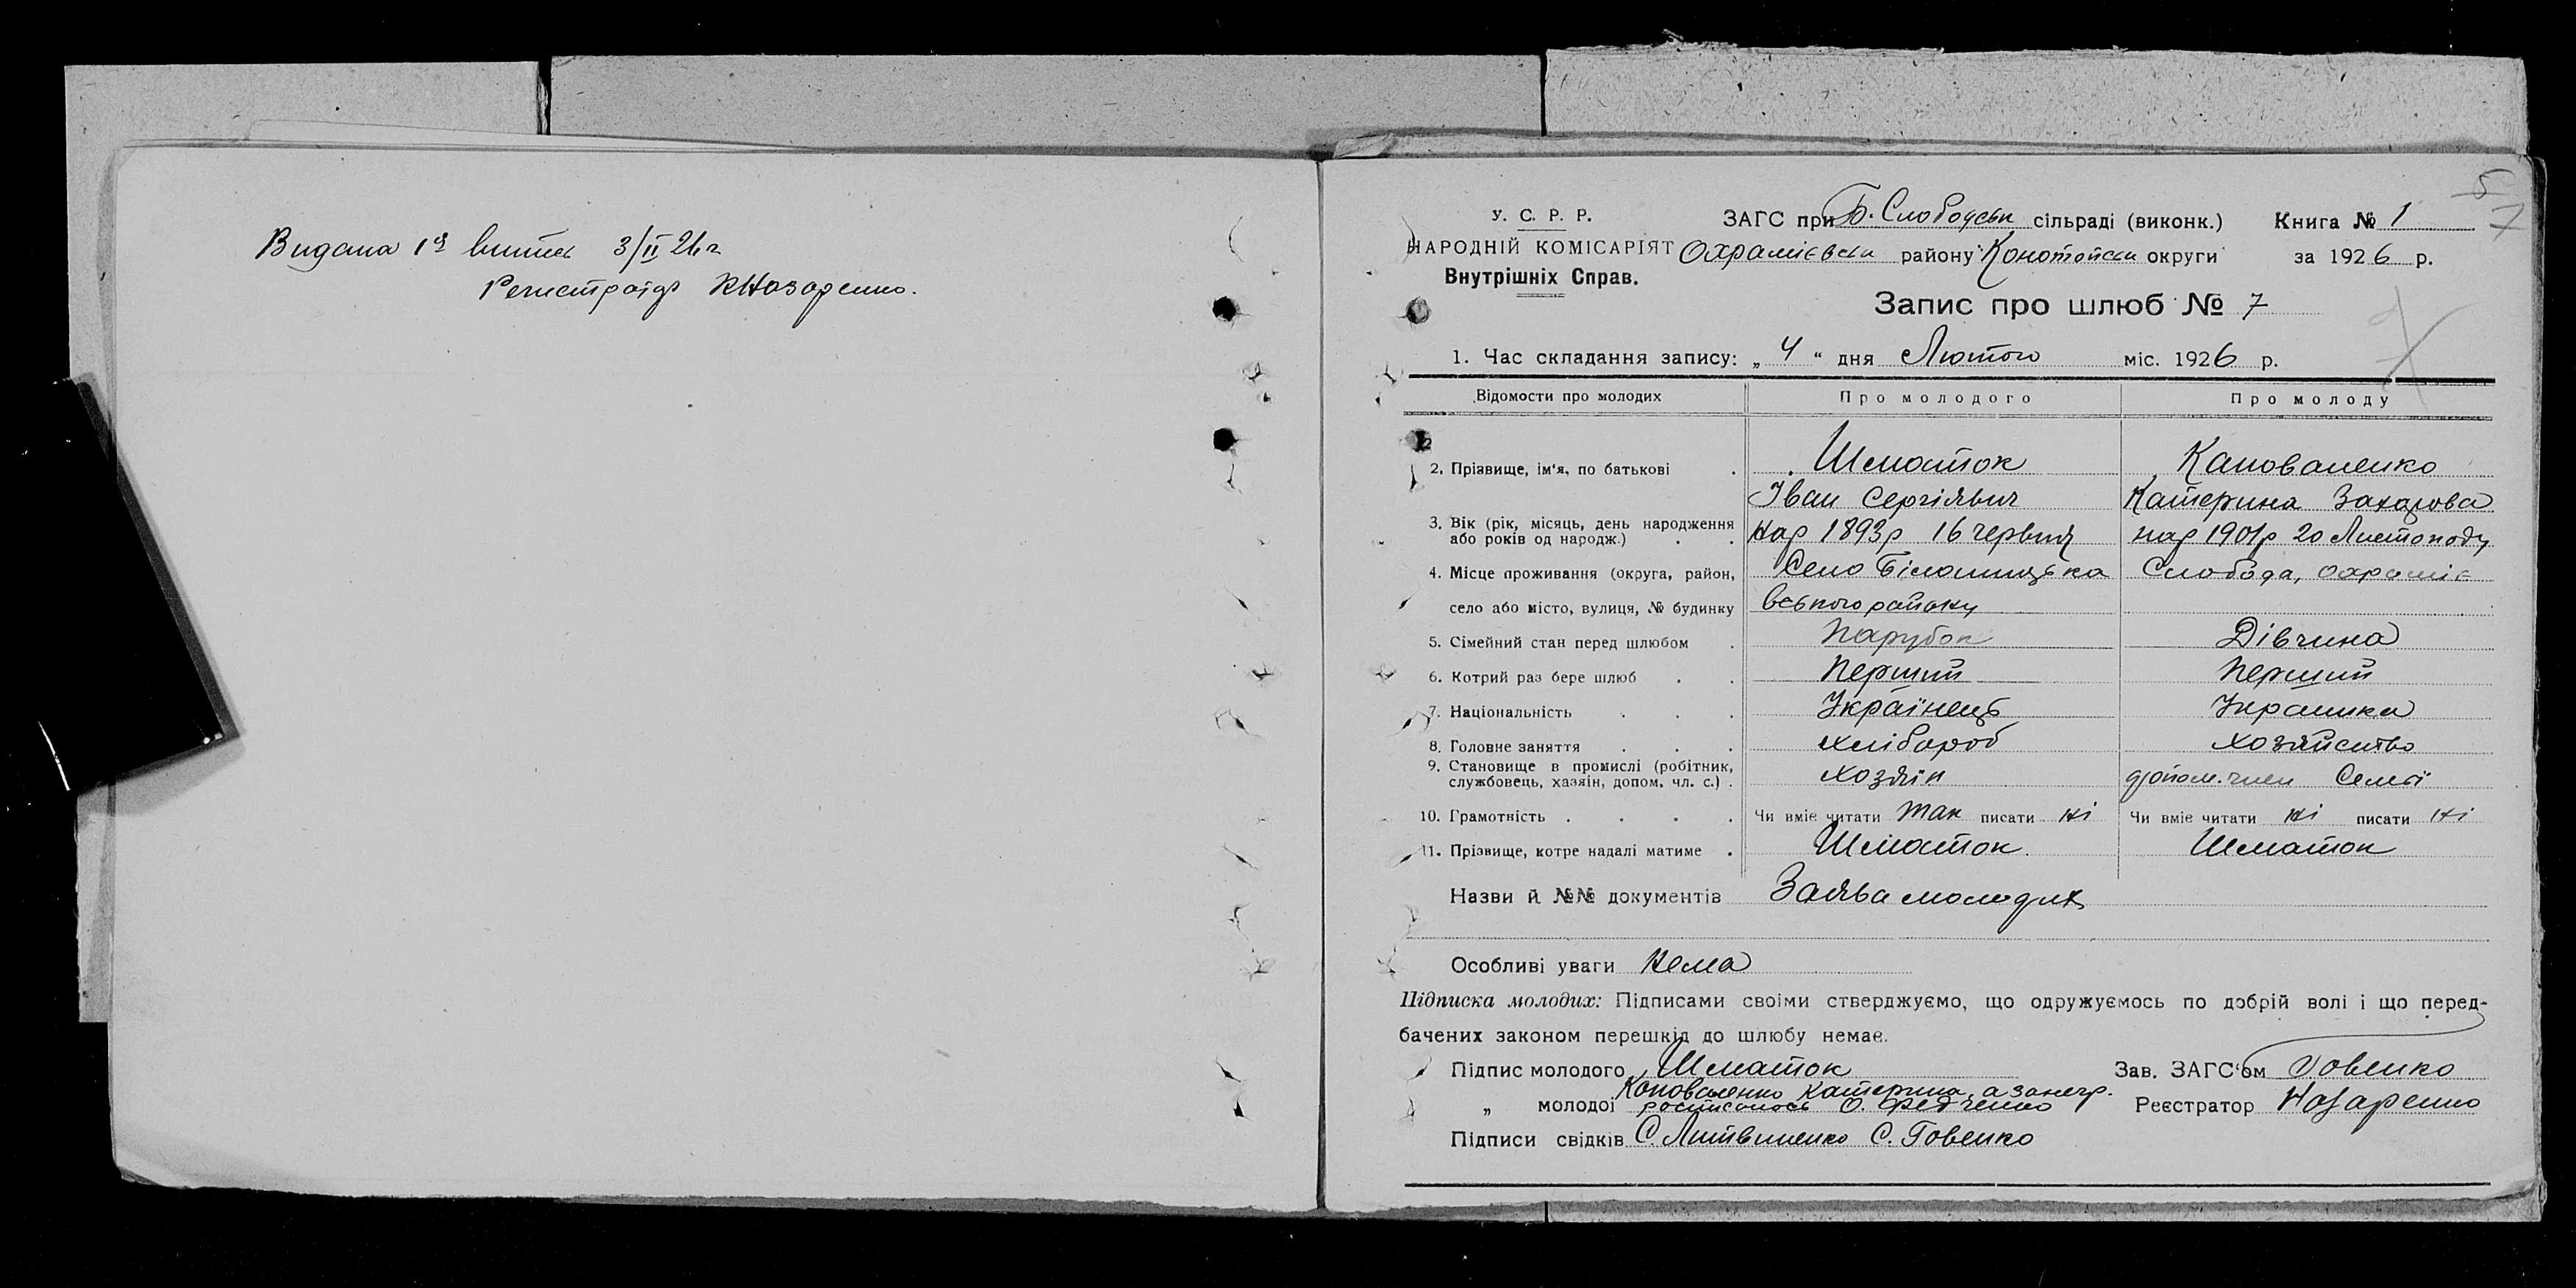 Видана 1й витяг 3/II 26 г
Регистратор КНазаренко.
5
7
У. С. Р. Р.
НАРОДНІЙ КОМІСАРІЯТ
Внутрішніх Справ.
ЗАГС при Б. Слободськ сільраді (виконк.) Книга № 1
Охрамієвськ району Конотопськ округи за 1926 р.
Запис про шлюб № 7
1. Час складання запису: „ 4 “ дня Лютого міс. 1926 р.
Відомости про молодих Про молодого Про молоду
2. Прізвище, ім'я, по батькові Шматок Кановаленко
Іван Сергієвич Катерина Захарова
3. Вік (рік, місяць, день народження або років од народж.) нар 1893р 16 червня нар 1901р 20 Листопаду
4. Місце проживання (округа, район, Село Біломицька Слобода, Охраміє
село або місто, вулиця, № будинку вського району
5. Сімейний стан перед шлюбом Парубок Дівчина
6. Котрий раз бере шлюб Перший Перший
7. Національність Українець Украинка
8. Головне заняття хлібороб хозяйство
9. Становище в промислі (робітник, службовець, хазяін, допом. чл. с.) хозяін допом. член Семєї
10. Грамотність Чи вміє читати так писати ні Чи вміє читати ні писати ні
11. Прізвище, котре надалі матиме Шматок Шматок
Назви й №№ документів Заява молодих
Особливі уваги Нема
Підписка молодих: Підписами своіми стверджуємо, що одружуємось по добрій волі і що перед-
бачених законом перешкід до шлюбу немає.
Підпис молодого Шматок Зав. ЗАГС'ом Говенко
Коноваленко Катерина, а за негр.
„ молодоі росписалось О. Федченко Реєстратор Назаренко
Підписи свідків С. Литвиненко С. Говенко